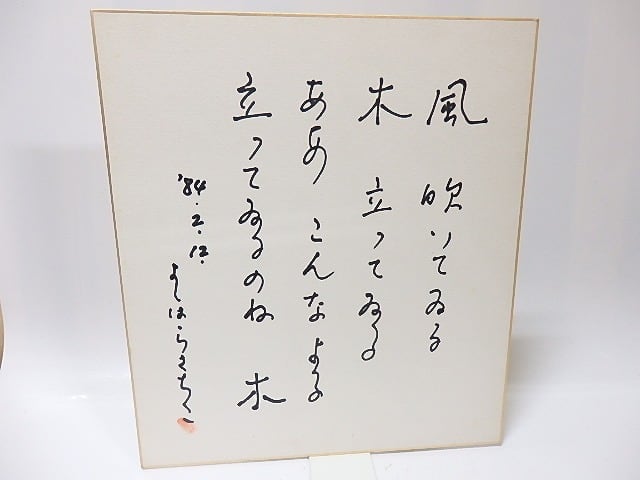 風 吹いてゐる
木 立つてゐる
ああ こんなよる
立つてゐるのね 木
'84.2.12.
よしはらさちこ